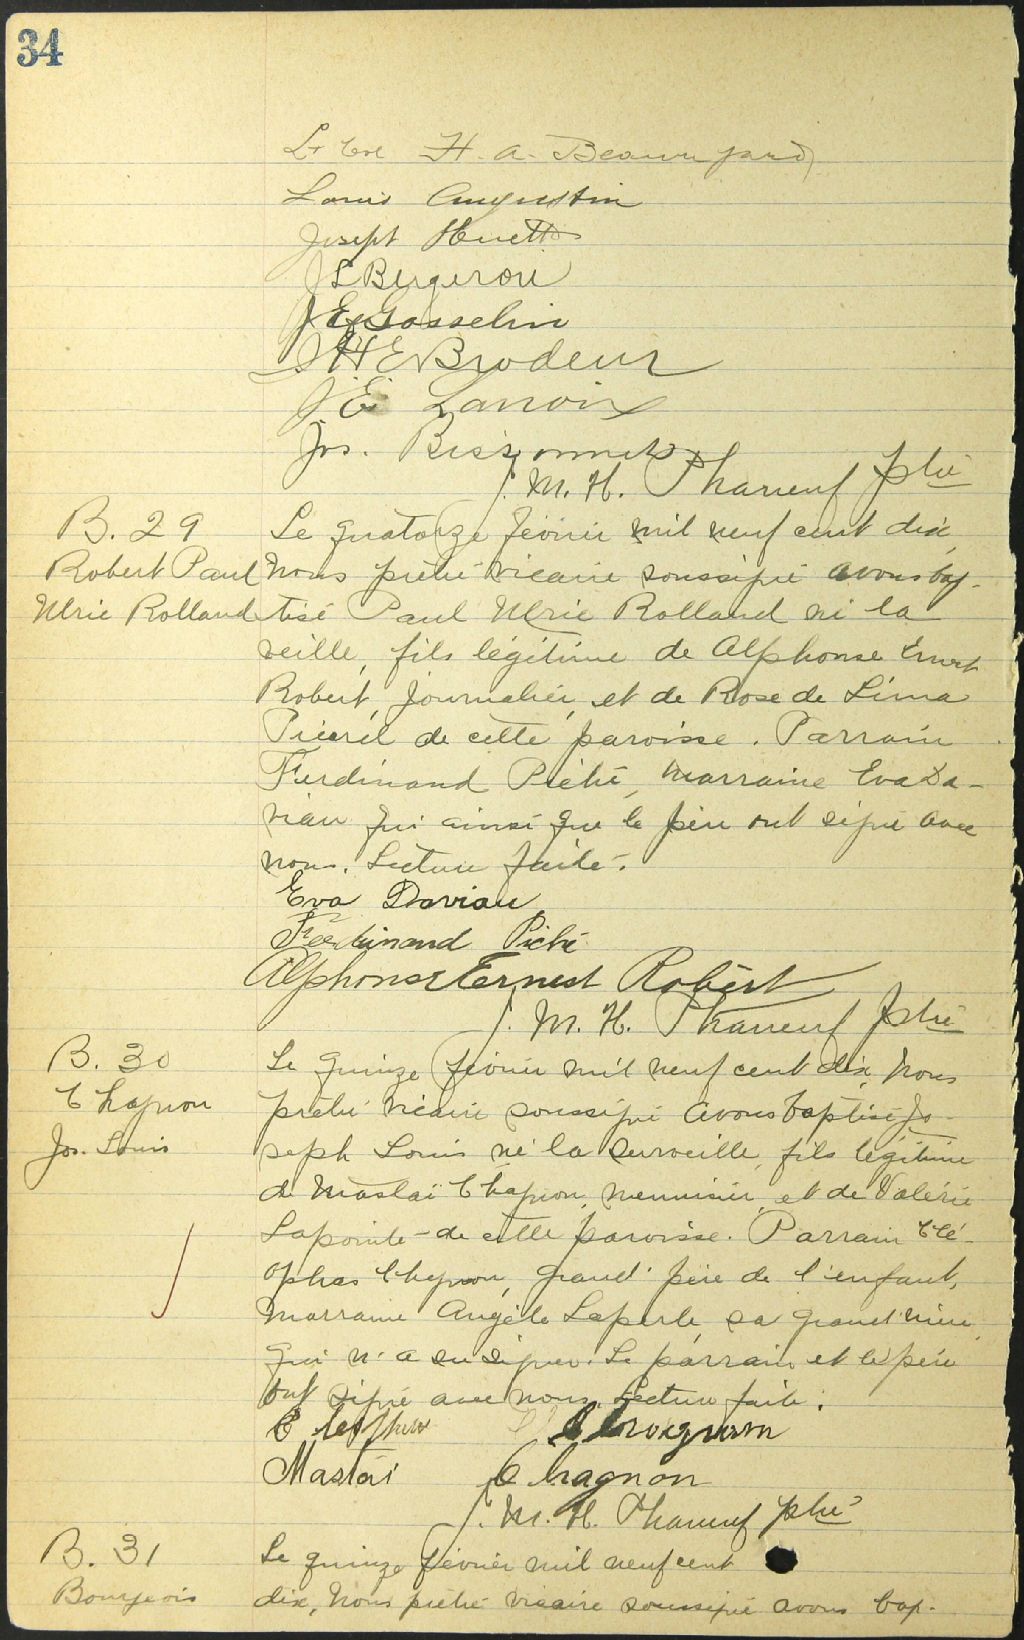 34
H. A. Beauregard
Louis Augustin
Joseph Huette
J L Bergeron
J E Gosselin
J H E Brodeur
J. E. Lacroix
Jos. Bissonnette
J. M. H. Phaneuf ptre
B. 29
Robert Paul
Ulric Rolland
Le quatorze février mil neuf cent dix,
Nous prêtre vicaire soussigné avons bap-
tisé Paul Ulric Rolland né la
veille, fils légitime de Alphonse Ernest
Robert, journalier, et de Rose de Lima
de cette paroisse. Parrain
Ferdinand Piché, marraine Eva Da-
viau qui ainsi que le père ont signé avec
nous. Lecture faite.
Eva Daviau
Ferdinand Piché
Alphonse Ernest Robert
J. M. H. Phaneuf ptre
B. 30
Chagnon
Jos. Louis
Le quinze février mil neuf cent dix, Nous
prêtre vicaire soussigné avons baptisé Jo-
seph Louis né la surveille, fils légitime
de Mastaï Chagnon, menuisier, et de Valérie
Lapointe de cette paroisse. Parrain Clé-
ophas Chagnon, grand'père de l'enfant,
marraine Angèle Laperle, sa grand'mère,
qui n'a su signer. Le parrain et le père
ont signé avec nous. Lecture faite.
Mastai Chagnon
J. M. H. Phaneuf ptre
B. 31
Bourgeois
Le quinze février mil neuf cent
dix, Nous prêtre vicaire soussigné avons bap-